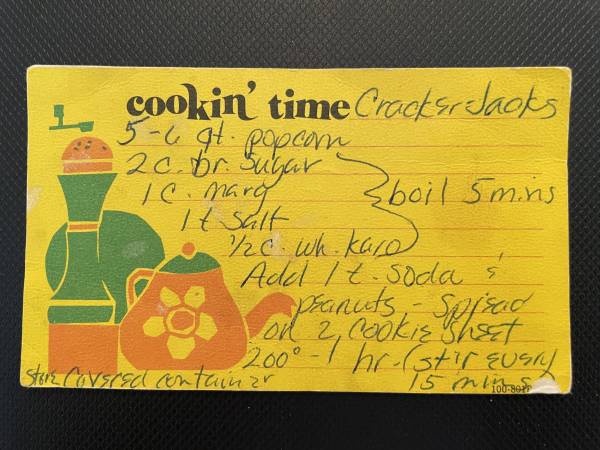 cookin' time Cracker Jacks
5-6 qt. popcorn
2 c. br. sugar
1 c. marg
1 t salt
1/2 c. wh. karo
boil 5 mins
Add 1 t. soda &
peanuts - spread
on 2 cookie sheet
200° - 1 hr. (stir every
15 mins
store covered container